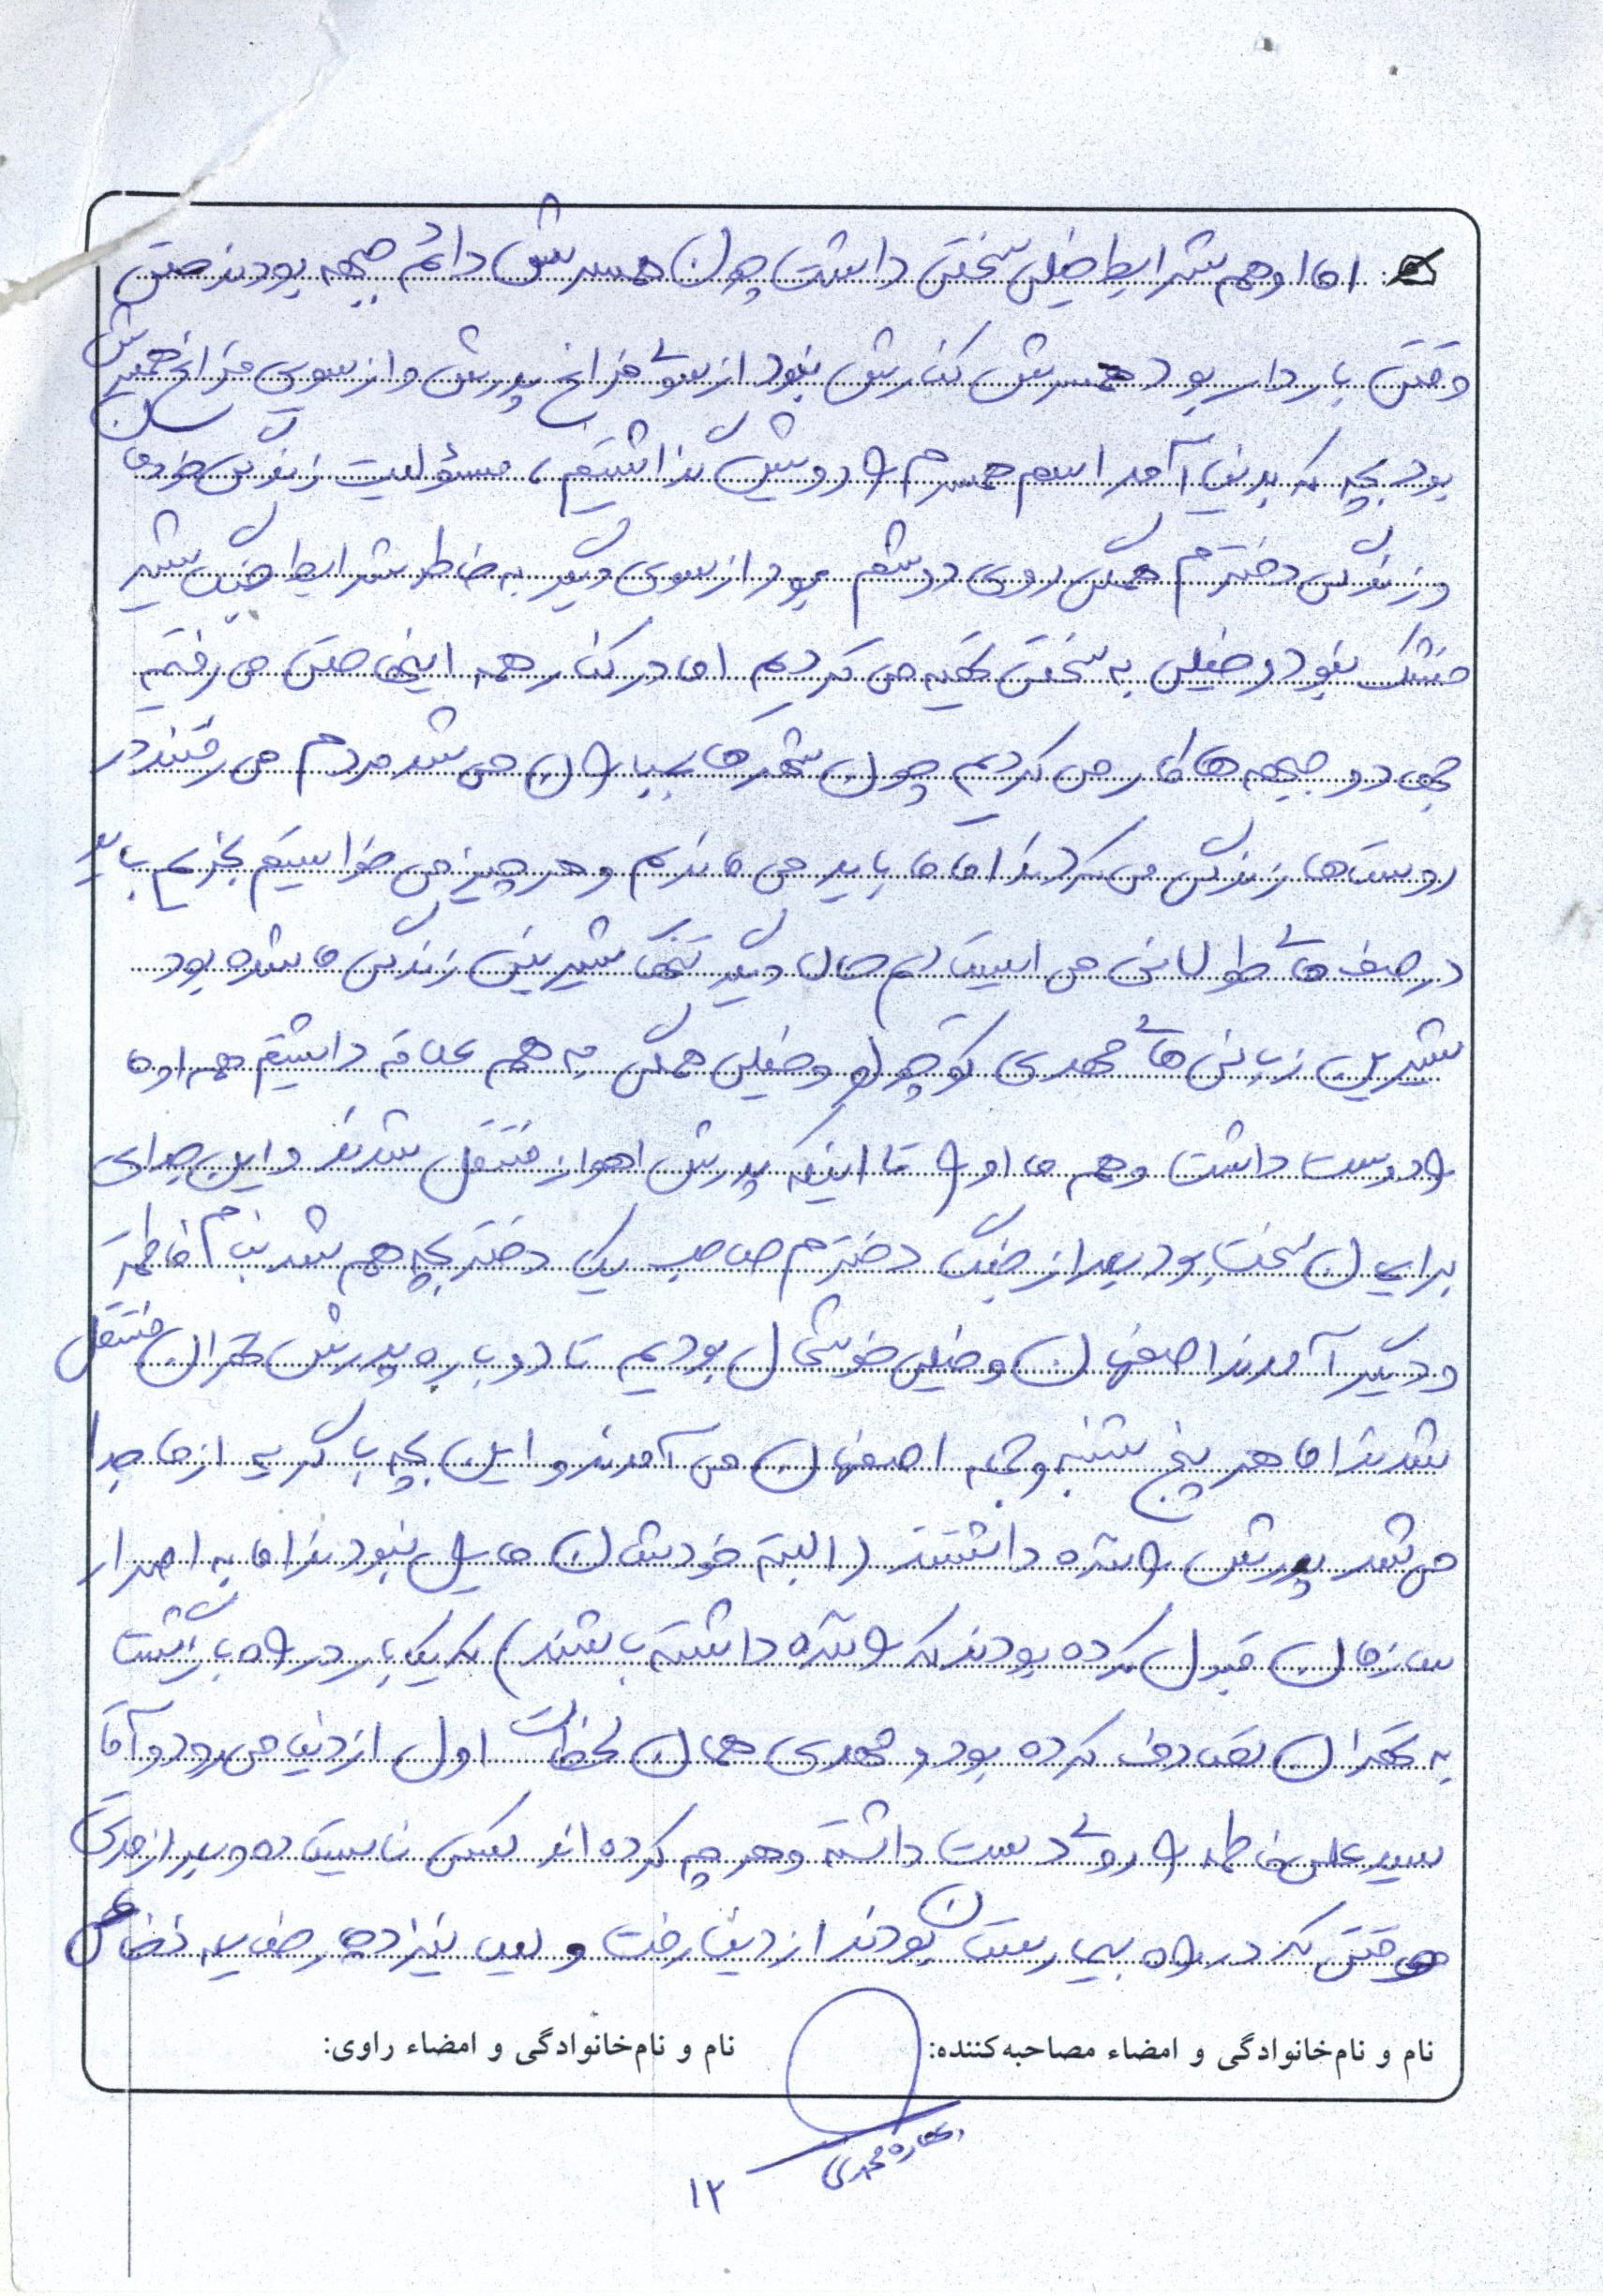 اما او هم شرایط خیلی سختی داشت چون همسرش دائم جبهه بودند حتی
وقتی باردار بود همسرش کنارش نبود از سوئی فراغ پدرش و از سویی فراغ همسرش
بود بچه که بدنیا آمد اسم همسرم را رویش گذاشتیم، مسئولیت زندگی خودم
و زندگی دخترم همگی روی دوشم بود از سوی دیگر به خاطر شرایط جنگ شیر
خشک نبود و خیلی به سختی تهیه می کردیم اما در کنار همه اینها حتی می رفتیم
جهاد و جبهه ها کار می کردیم چون شهرها بمباران می شد مردم می رفتند در
روستاها زندگی می کردند اما ما باید می ماندیم و هر چیز می خواستیم بخریم باید
در صف های طولانی می ایستادیم حال دیگر تنها شیرینی زندگی ما شده بود
شیرین زبانی های مهدی کوچولو و خیلی همگی به هم علاقه داشتیم هم او ما
را دوست داشت و هم ما او را تا اینکه پدرش اهواز منتقل شدند و این جدایی
برایمان سخت بود بعد از جنگ دخترم صاحب یک دختر بچه هم شد بنام فاطمه
و دیگر آمدند اصفهان و خیلی خوشحال بودیم تا دوباره پدرش تهران منتقل
شدند اما هر پنج شنبه و جمعه اصفهان می آمدند و این بچه با گریه از ما جدا
می شد پدرش راننده داشتند (البته خودشان مایل نبودند اما به اصرار
سازمان قبول کرده بودند که راننده داشته باشند) که یکبار در راه بازگشت
به تهران تصادف کرده بود و مهدی همان لحظات اول از دنیا می رود و آقا
سید علی فاطمه را روی دست داشته و هر چه کرده اند کسی نایستاده و بعد از مدتی
وقتی که در راه بیمارستان بودند از دنیا رفت و
نام و نام‌خانوادگی و امضاء مصاحبه‌کننده: نام و نام‌خانوادگی و امضاء راوی:
بهاره محمدی
۱۲